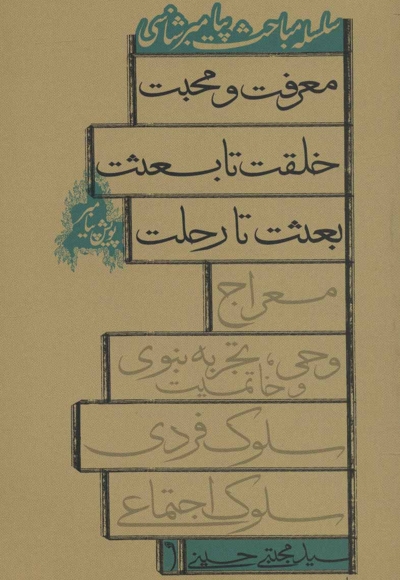 سلسله مباحث پیامبرشناسی
معرفت و محبت
خلقت تا بعثت
بعثت تا رحلت
پویش پیامبر
معراج
وحی، تجربه نبوی
و خاتمیت
سلوک فردی
سلوک اجتماعی
سید مجتبی حسینی